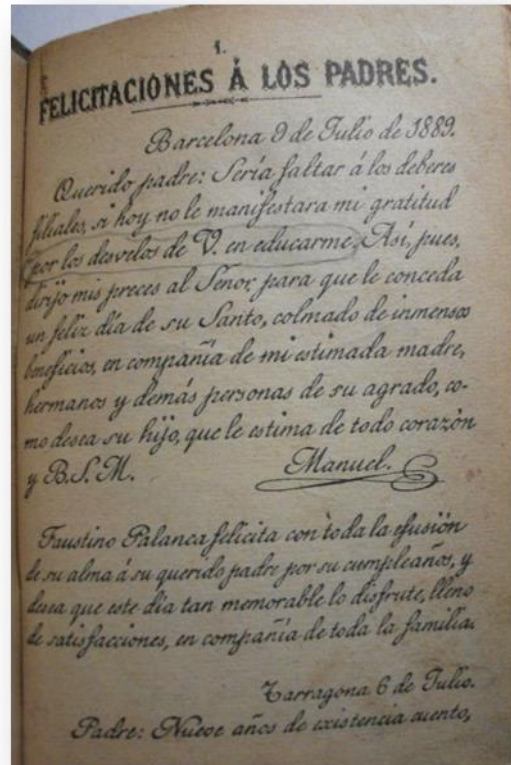 1.
FELICITACIONES Á LOS PADRES.
Barcelona 9 de Julio de 1889.
Querido padre: Sería faltar á los deberes
filiales, si hoy no le manifestara mi gratitud
por los desvelos de V. en educarme. Así, pues,
dirijo mis preces al Senor, para que le conceda
un feliz día de su Santo, colmado de inmensos
beneficios, en compañía de mi estimada madre,
hermanos y demás personas de su agrado, co-
mo desea su hijo, que le estima de todo corazón
y B.S.M. Manuel.
Faustino Palanca felicita con toda la efusión
de su alma á su querido padre por su cumpleaños, y
desea que este día tan memorable lo disfrute, lleno
de satisfacciones, en compañía de toda la familia.
Tarragona 6 de Julio.
Padre: Nueve años de existencia cuento,